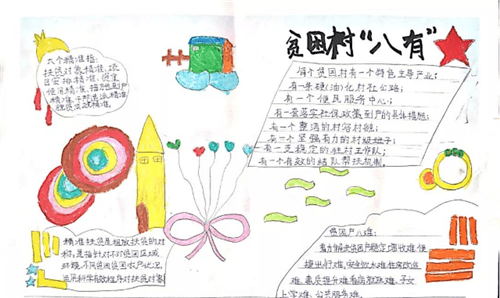 贫困村“八有”
六个精准指:
扶贫对象精准,项
目安排精准,资金
使用精准,措施到户
精准,
脱贫成效精准。
每个贫困村有一个特色主导产业;
有一条硬(油)化村社公路;
有一个便民服务中心;
有一套落实社保政策到户的具体措施;
有一个整洁的村容村貌;
有一个坚强有力的村级班子;
有一支稳定的驻村工作队;
有一个有效的结队帮扶机制。
精准扶贫是粗放扶贫的对
称,是指针对不同贫困区域
环境、不同贫困农户状况,
运用科学有效程序对扶贫对象
贫困户八难:
着力解决贫困户稳定增收难、便
捷出行难、安全饮水难、住房改造
难、素质提升难、看病就医难、子女
上学难、公共服务难。